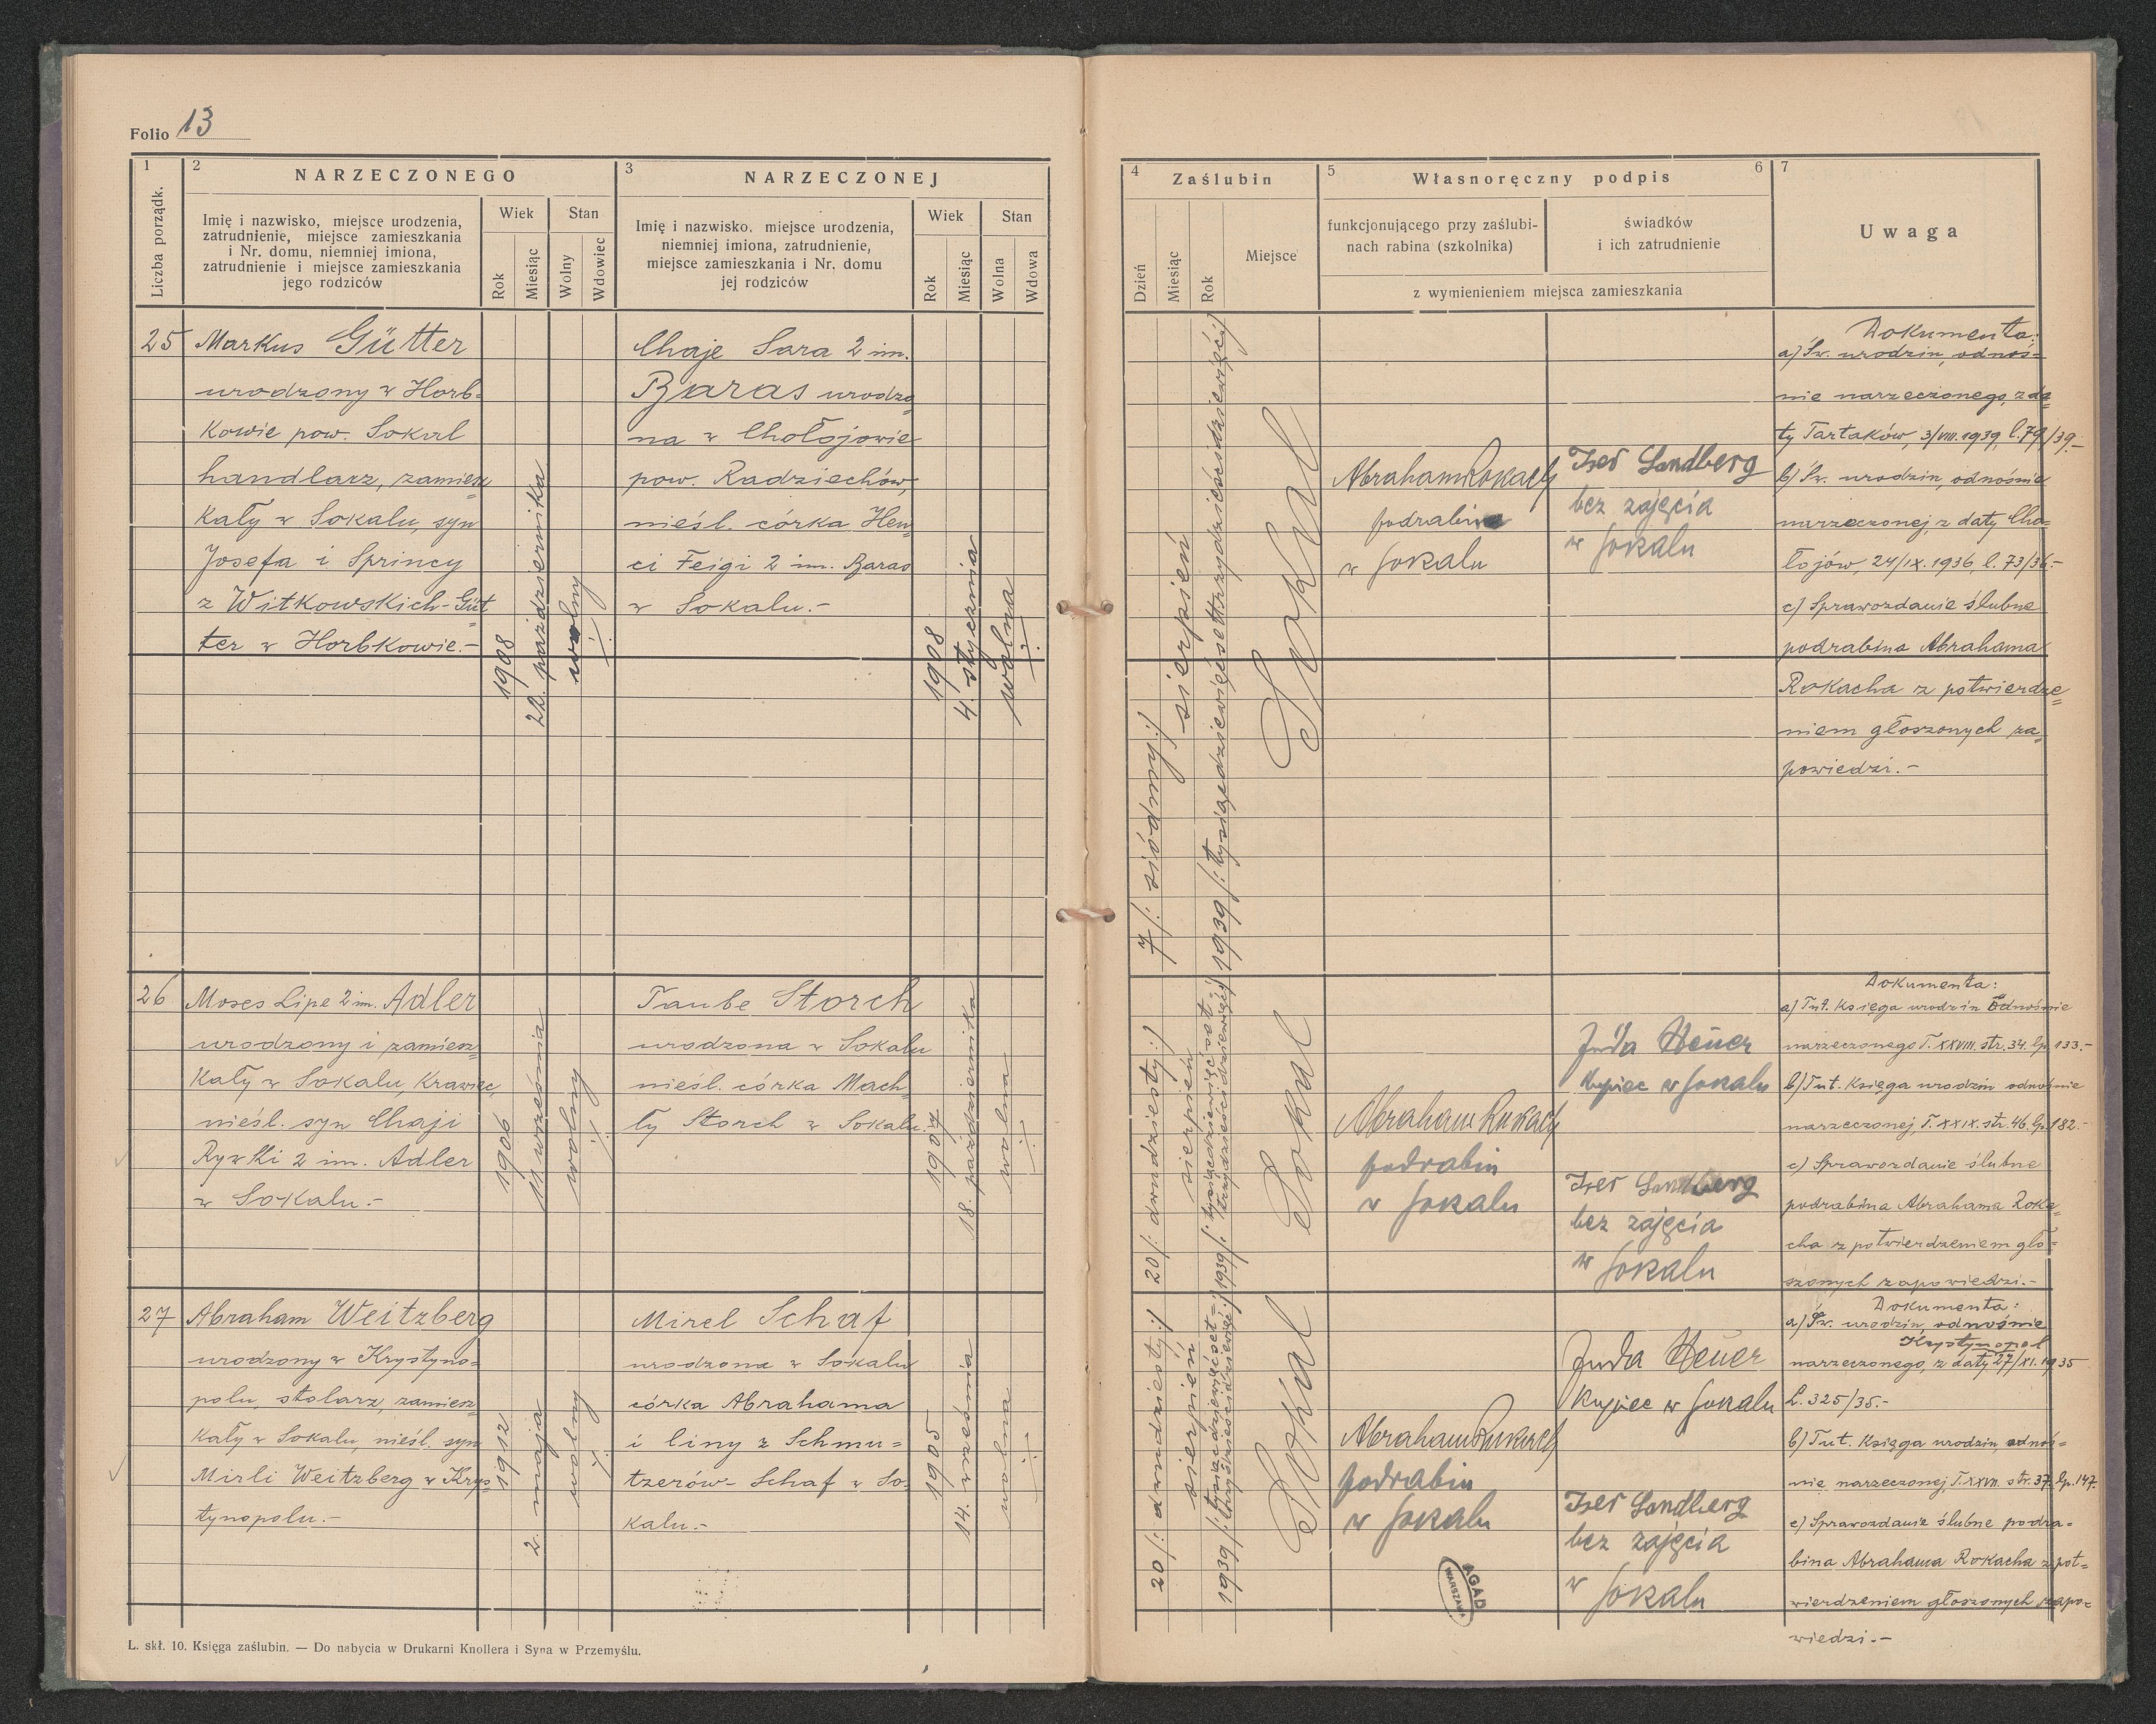 Folio 13
1
Liczba porządk.
2
NARZECZONEGO
Imię i nazwisko, miejsce urodzenia,
zatrudnienie, miejsce zamieszkania
i Nr. domu, niemniej imiona,
zatrudnienie i miejsce zamieszkania
jego rodziców
Wiek
Rok
Miesiąc
Stan
Wolny
Wdowiec
3
NARZECZONEJ
Imię i nazwisko, miejsce urodzenia,
niemniej imiona, zatrudnienie,
miejsce zamieszkania i Nr. domu
jej rodziców
Wiek
Rok
Miesiąc
Stan
Wolna
Wdowa
4
Zaślubin
Dzień
Miesiąc
Rok
Miejsce
5
Własnoręczny podpis
6
funkcjonującego przy zaślubi-
nach rabina (szkolnika)
świadków
i ich zatrudnienie
z wymienieniem miejsca zamieszkania
7
Uwaga
25
Markus Gütter
urodzony w Horb=
kowie pow. Sokal
handlarz, zamiesz=
kały w Sokalu, syn
Josefa i Sprincy
z Witkowskich-Güt
ter w Horbkowie.-
1908
22. października
wolny
Chaje Sara 2 im.
Baras urodzo=
na w Chołojowie
pow. Radziechów,
nieśl. córka Hen=
ci Feigi 2 im. Baras
w Sokalu.-
1908
4 stycznia
wolna
7 /: siódmy :/
sierpień
1939 /: tysiącdziewięćsettrzydzieścidziewięć :/
Sokal
Abraham Rokach
podrabin
w Sokalu
Iser Sandberg
bez zajęcia
w Sokalu
Dokumenta:
a) Św. urodzin, odnoś=
nie narzeczonego, z da=
ty Tartaków, 3/VIII.1939, l.79/39.-
b) Św. urodzin, odnośnie
narzeczonej, z daty Cho=
łojów, 24/IX.1936, l.73/36.-
c) Sprawozdanie ślubne
podrabina Abrahama
Rokacha z potwierdze=
niem głoszonych za=
powiedzi.-
26
Moses Lipe 2 im. Adler
urodzony i zamiesz=
kały w Sokalu, krawiec,
nieśl. syn Chaji
Rywki 2 im. Adler
w Sokalu.-
1906
11 września
wolny
Taube Storch
urodzona w Sokalu
nieśl. córka Mach=
ly Storch w Sokalu.
1907
18. października
wolna
20 /: dwudziesty :/
sierpień
1939 /: tysiącdziewięćset=
trzydzieścidziewięć :/
Sokal
Abraham Rokach
podrabin
w Sokalu
Juda Heuer
kupiec w Sokalu
Iser Sandberg
bez zajęcia
w Sokalu
Dokumenta:
a) Tut. Księga urodzin odnośnie
narzeczonego T. XXVIII. str. 34. lp. 133.-
b) Tut. Księga urodzin odnośnie
narzeczonej, T. XXIX. str. 46. lp. 182.-
c) Sprawozdanie ślubne
podrabina Abrahama Roka=
cha z potwierdzeniem gło=
szonych zapowiedzi.-
27
Abraham Weitzberg
urodzony w Krystyno=
polu, stolarz, zamiesz=
kały w Sokalu, nieśl. syn
Mirli Weitzberg w Krys=
tynopolu.-
1912
2. maja
wolny
Mirel Schaf
urodzona w Sokalu
córka Abrahama
i Liny z Schmu=
tzerów- Schaf w So=
kalu.-
1905
14. września
wolna
20 /: dwudziesty :/
sierpień
1939 /: tysiącdziewięćset=
trzydzieścidziewięć :/
Sokal
Abraham Rokach
podrabin
w Sokalu
Juda Heuer
kupiec w Sokalu
Iser Sandberg
bez zajęcia
w Sokalu
Dokumenta:
a) Św. urodzin, odnośnie
Krystynopol
narzeczonego, z daty 27/XI.1935
L. 325/35.-
b) Tut. Księga urodzin odnoś=
nie narzeczonej, T. XXVII. str. 37. lp. 147.
c) Sprawozdanie ślubne podra=
bina Abrahama Rokacha z pot=
wierdzeniem głoszonych zapo=
wiedzi.-
AGAD
WARSZAWA
L. skł. 10. Księga zaślubin. — Do nabycia w Drukarni Knollera i Syna w Przemyślu.